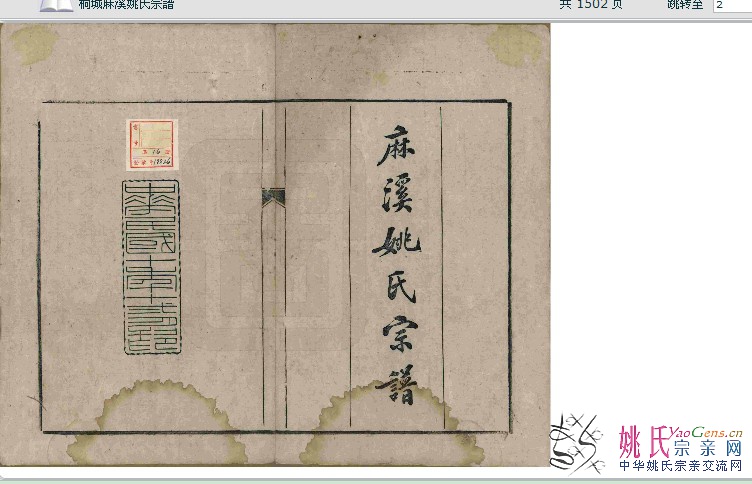 桐城麻溪姚氏宗譜
共 1502 页
跳转至
2
麻溪姚氏宗譜
姚氏宗亲网
YaoGens.cn
中华姚氏宗亲交流网